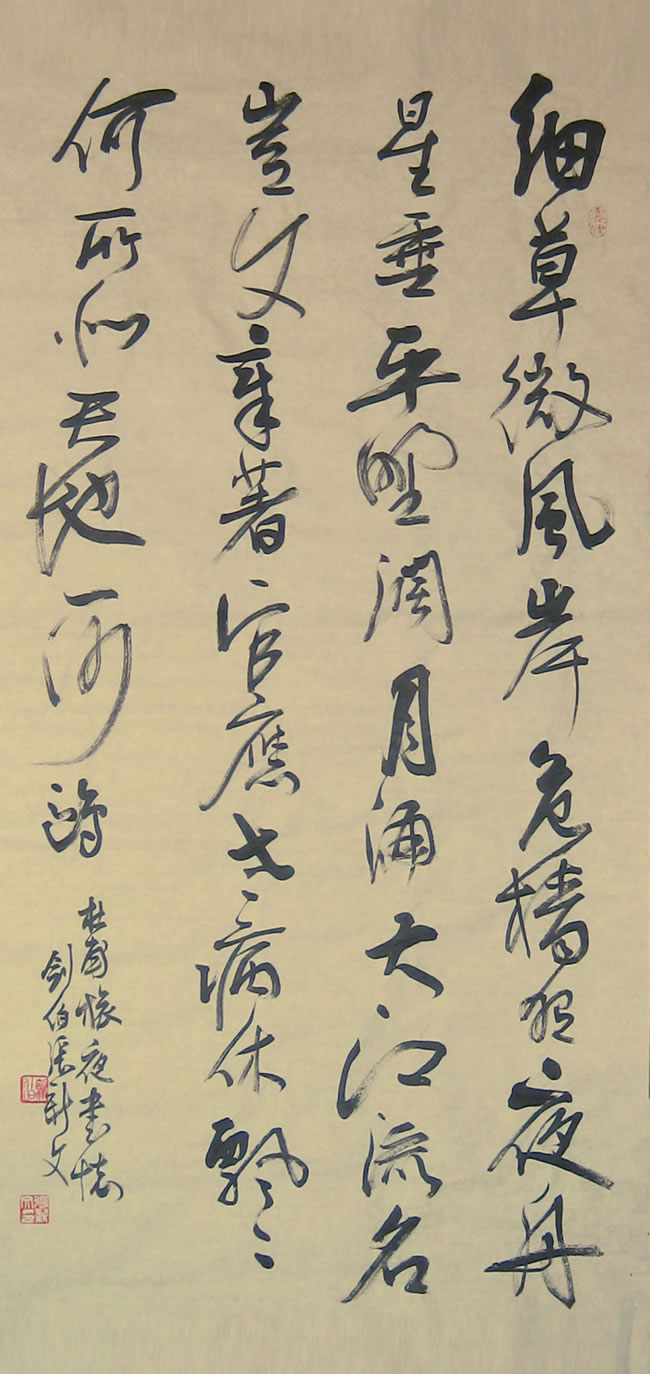 細草微風岸危檣獨夜舟
星垂平野濶月涌大江流名
豈文章著官應老病休飄〻
何所似天地一沙鷗
杜甫旅夜書懷
劍伯張新文